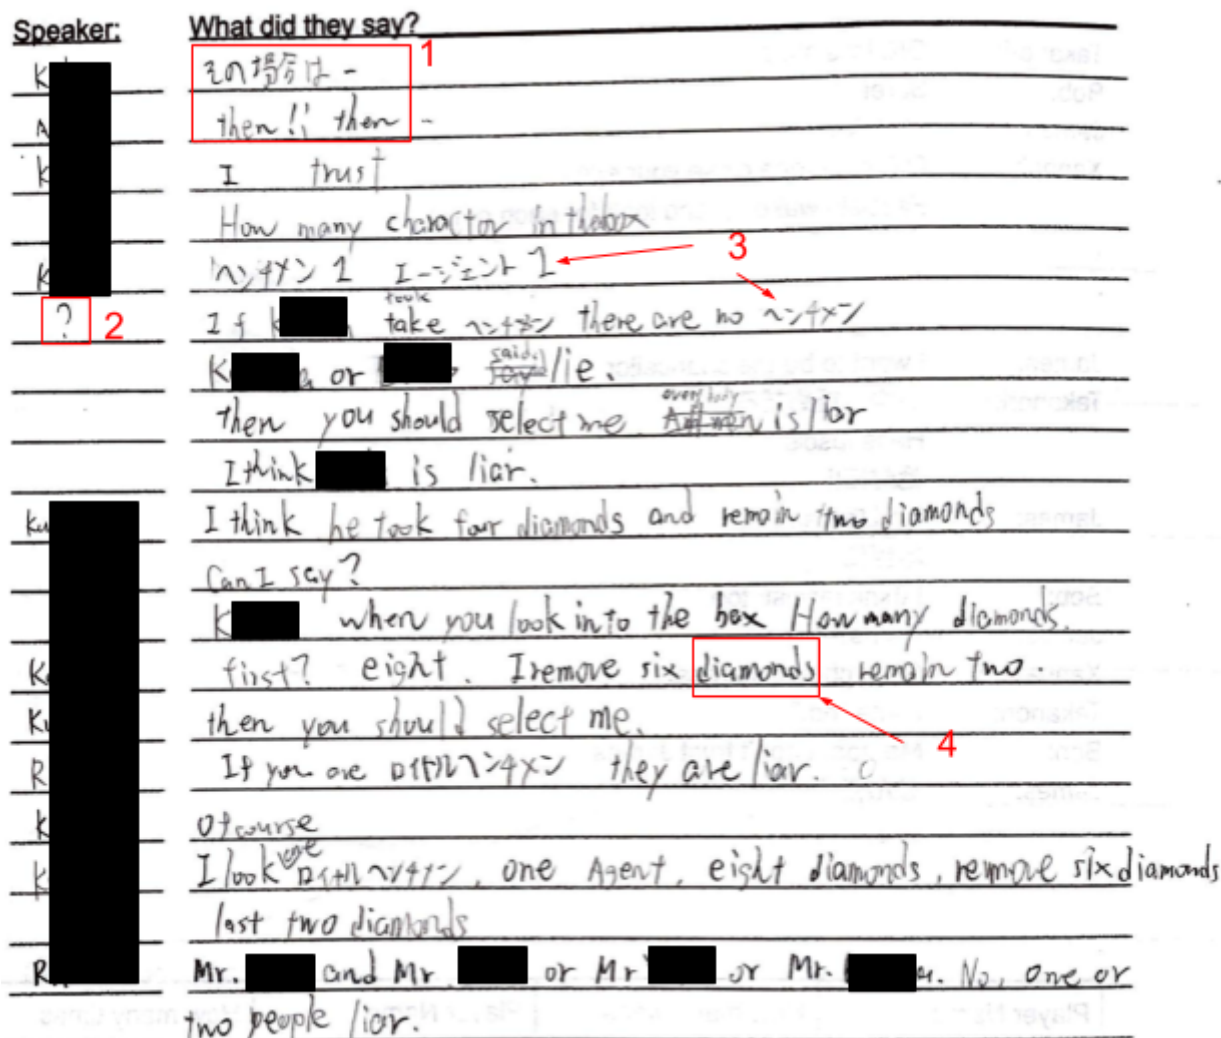 Speaker: What did they say?
1
K その場合は -
A then!; then -
K I trust
How many charactor in thebox
3
K ヘンチメン 1 エージェント 1
took
? 2 If K take ヘンチメン there are no ヘンチメン
said
K or say lie.
everybody
then you should select me. is liar
I think is liar.
Ku I think he took four diamonds and remain two diamonds
Can I say?
K when you look into the box How many diamonds.
K first? eight. I remove six diamonds remain two.
Ku then you should select me.
4
R If you are ロイヤルヘンチメン they are liar.
K Of course
one
K I look ロイヤルヘンチメン, one Agent, eight diamonds, remove six diamonds
last two diamonds
R Mr. and Mr. or Mr or Mr. a. No, one or
two people liar.
Player Name